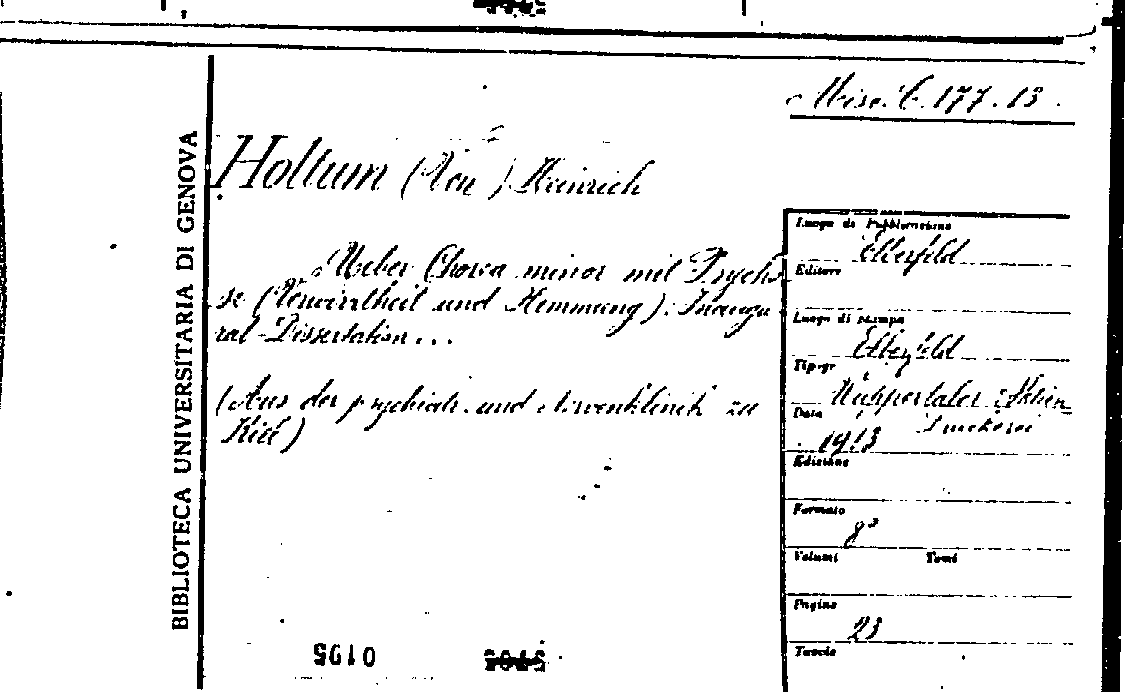 Misc. C. 177. 13.
BIBLIOTECA UNIVERSITARIA DI GENOVA
Holtum (Von) Heinrich
Ueber Chorea minor mit Psycho-
se (Verwirrtheit und Hemmung). Inaugu-
ral-Dissertation...
(Aus der psychiatr. und Nervenklinik zu
Kiel)
Luogo di Pubblicazione
Elberfeld
Editore
Luogo di stampa
Elberfeld
Tip-gr
Wuppertaler Aktien
Data
Druckerei
1913
Edizione
Formato
8°
Volumi Tomi
Pagine
23
Tavole
0195